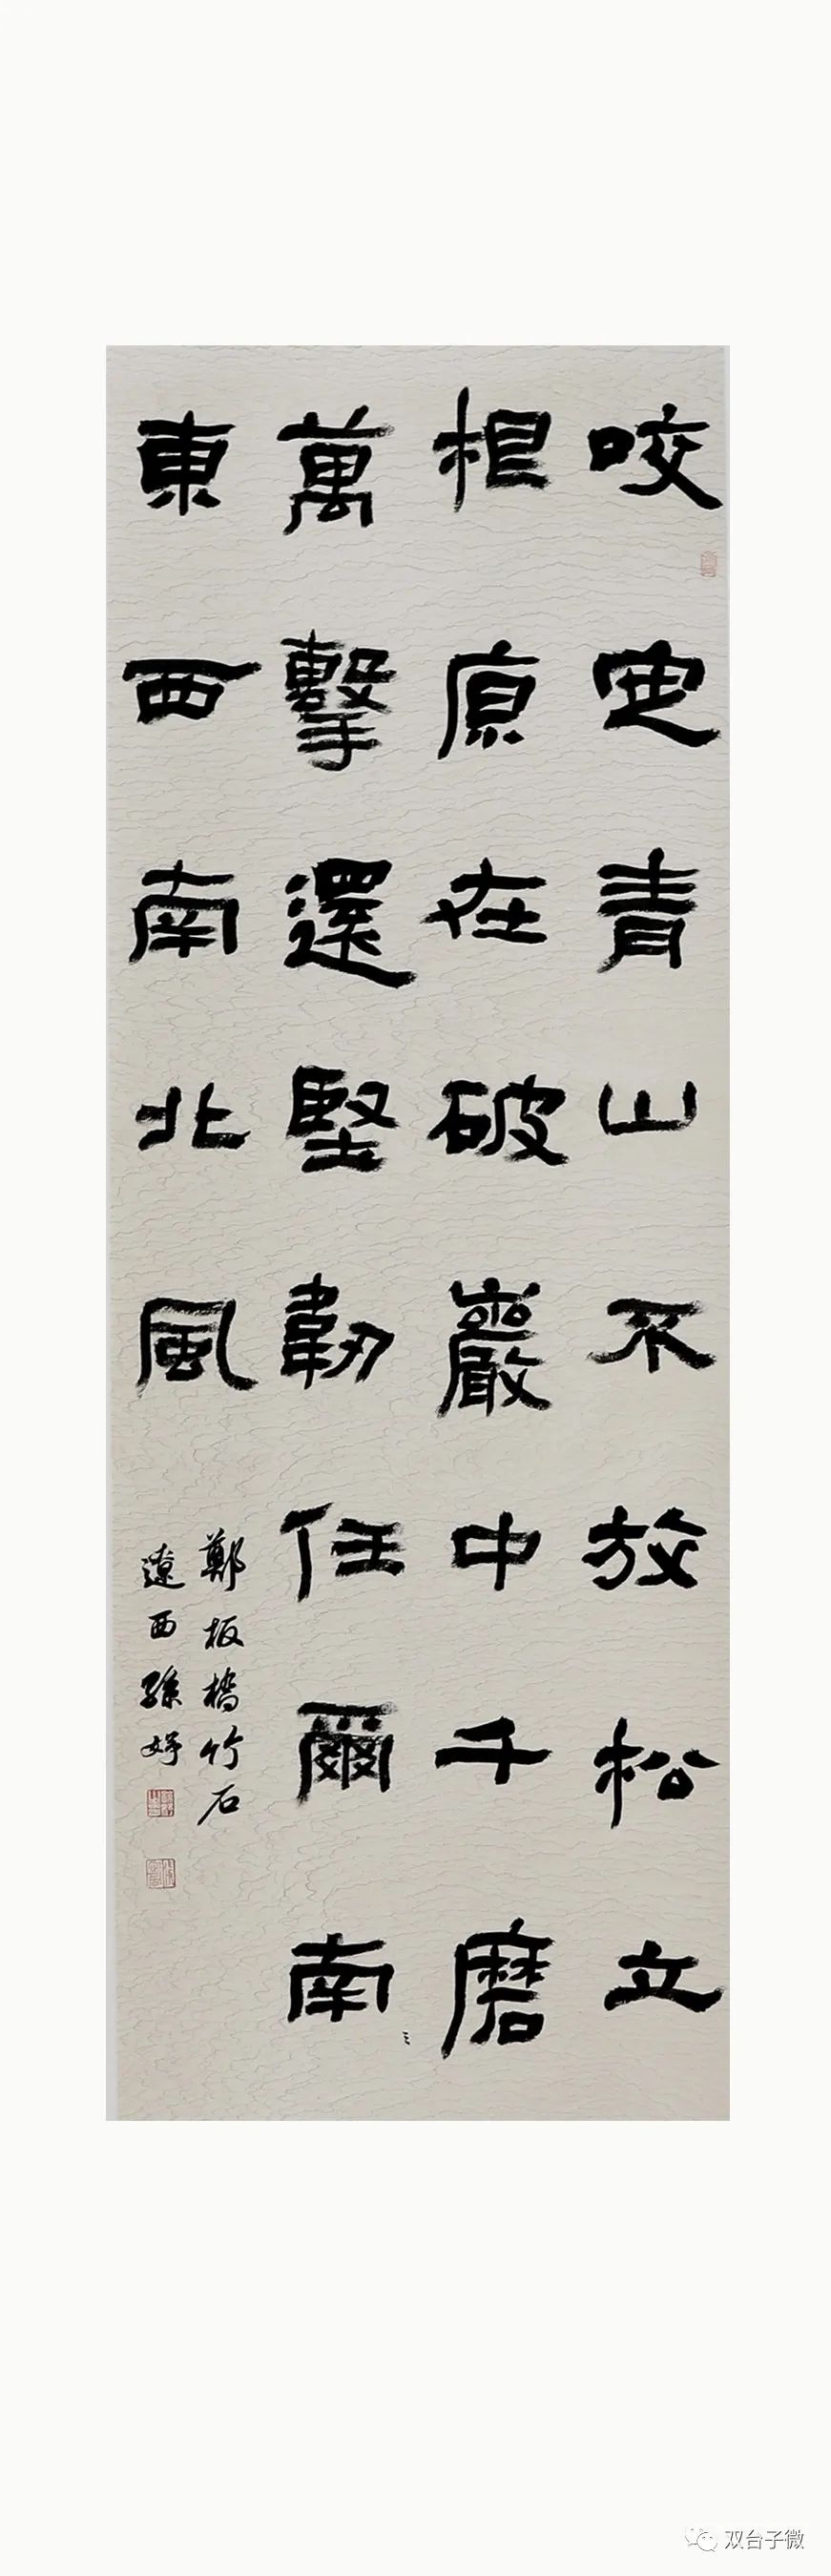 咬定青山不放松立
根原在破巖中千磨
萬擊還堅韌任爾南
東西南北風
鄭板橋竹石
遼西孫妤
双台子微